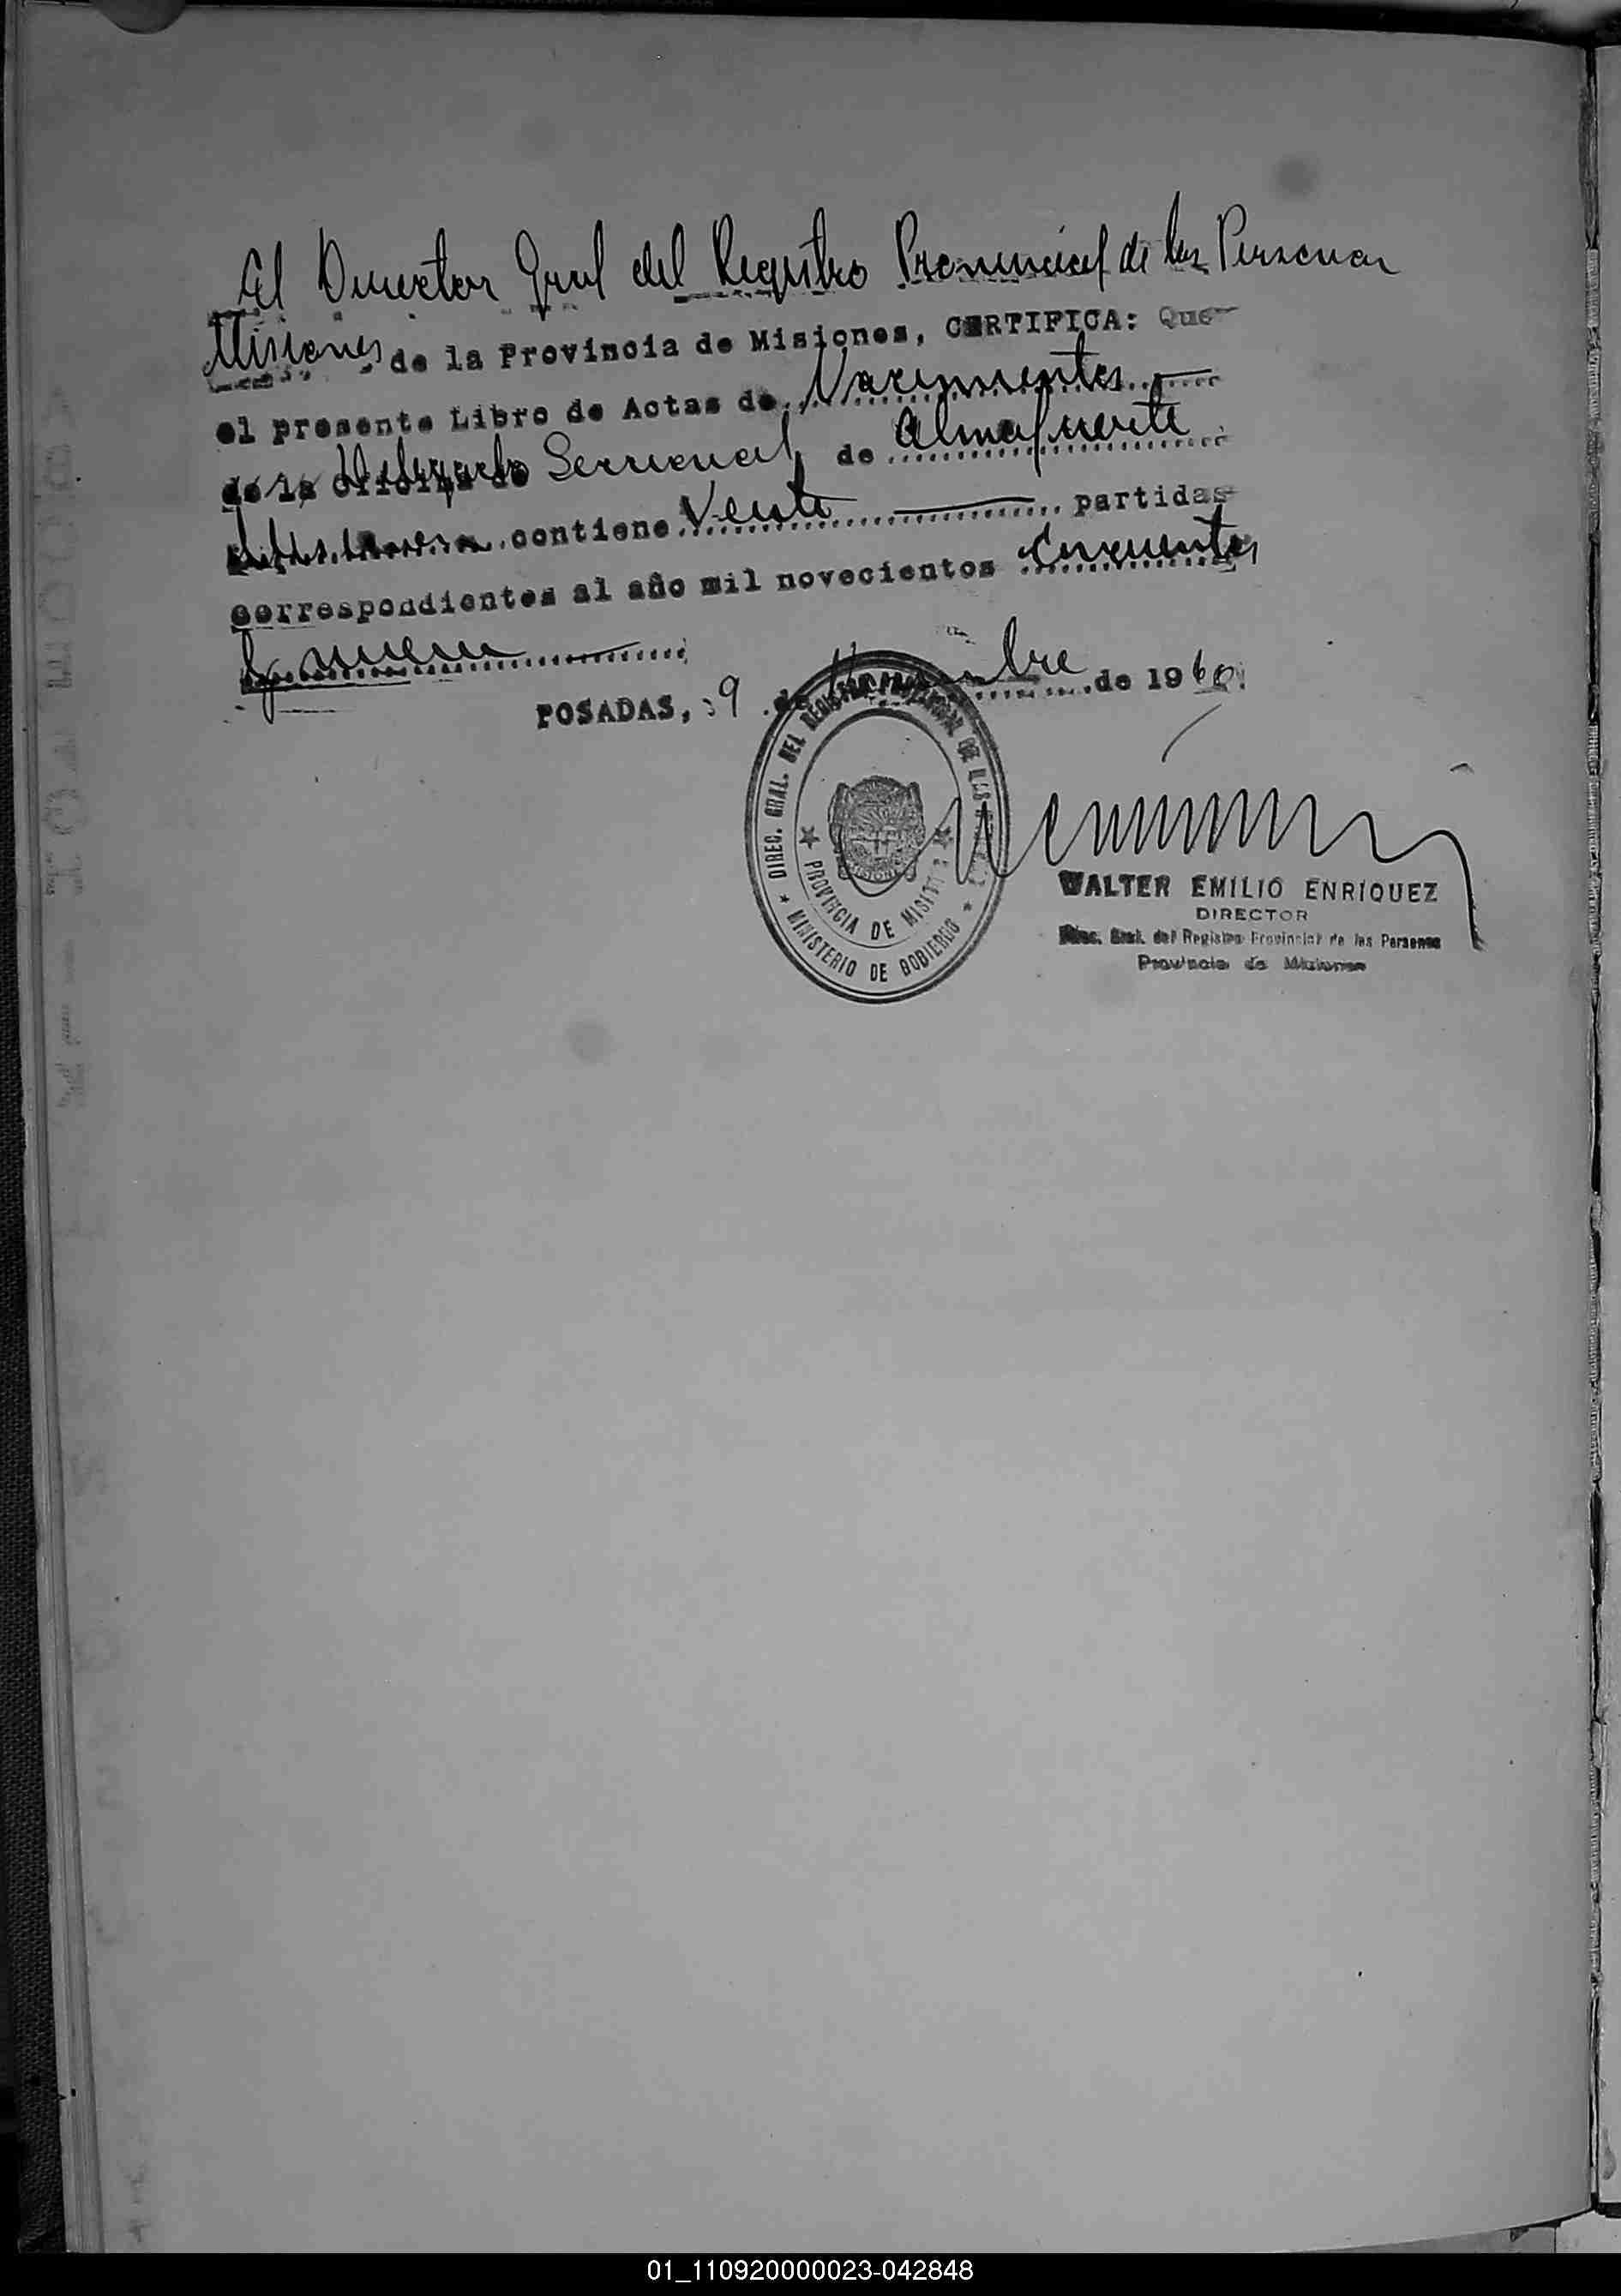 El Director Gral del Registro Provincial de las Personas
Misiones de la Provincia de Misiones, CERTIFICA: Que
el presente Libro de Actas de Nacimientos
de la Oficina de Seccional de Almafuerte
contiene Veinte partidas
correspondientes al año mil novecientos Cincuenta
y nueve
POSADAS, 9 de bre de 1960.
DIREC. GRAL. DEL REGISTRO PROVINCIAL DE LAS
PROVINCIA DE MISIONES
MINISTERIO DE GOBIERNO
WALTER EMILIO ENRIQUEZ
DIRECTOR
Direc. Gral. del Registro Provincial de las Personas
Provincia de Misiones
01_110920000023-042848